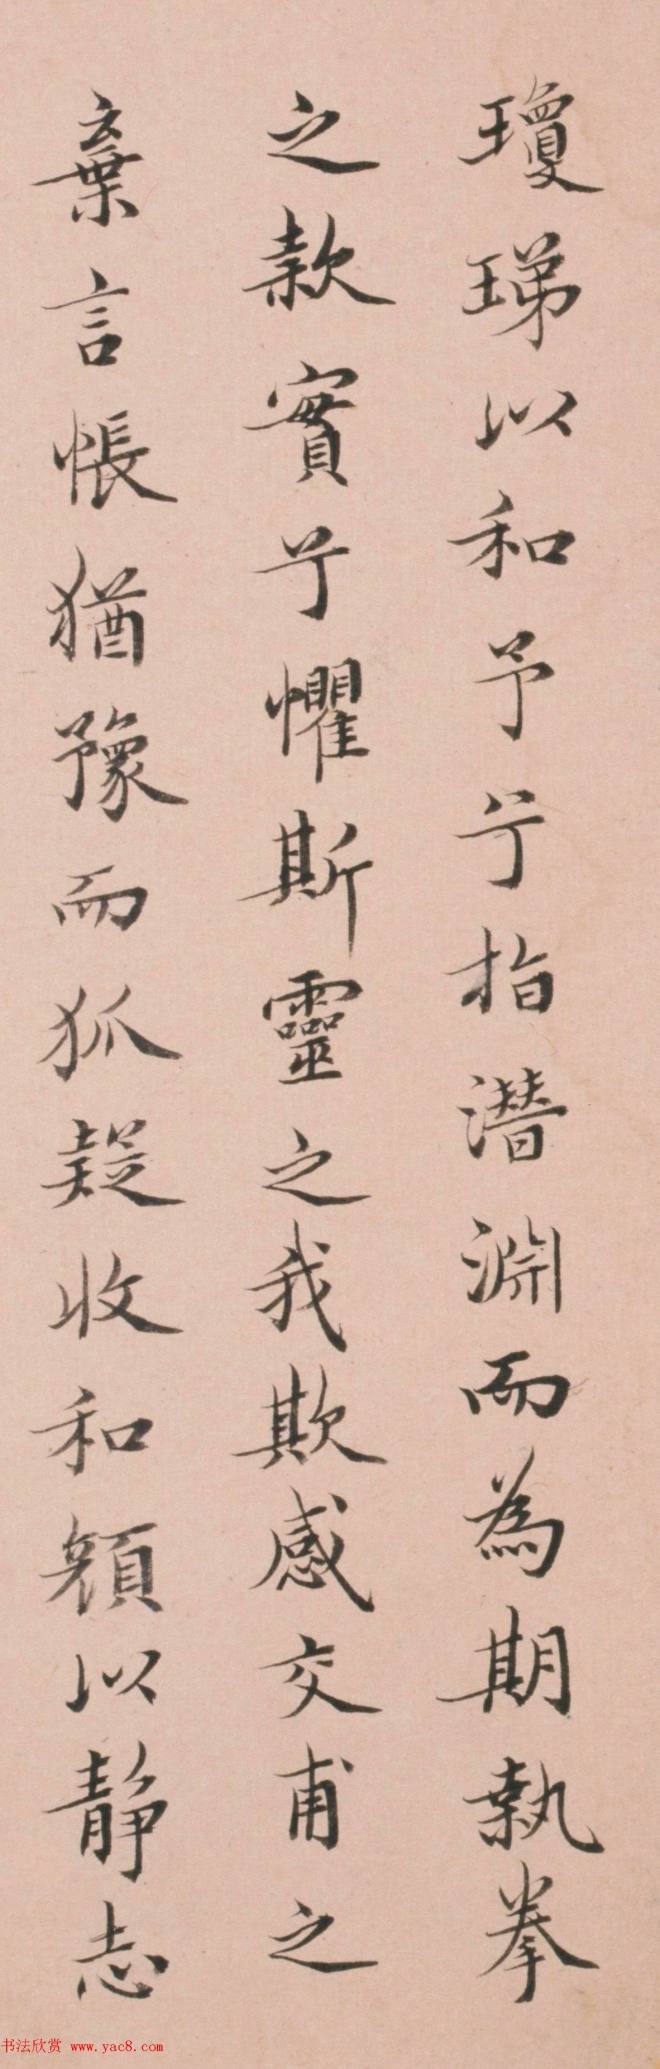 瓊珶以和予兮指潛淵而為期執拳
之款實兮懼斯靈之我欺感交甫之
棄言悵猶豫而狐疑收和顏以静志
书法欣赏 www.yac8.com